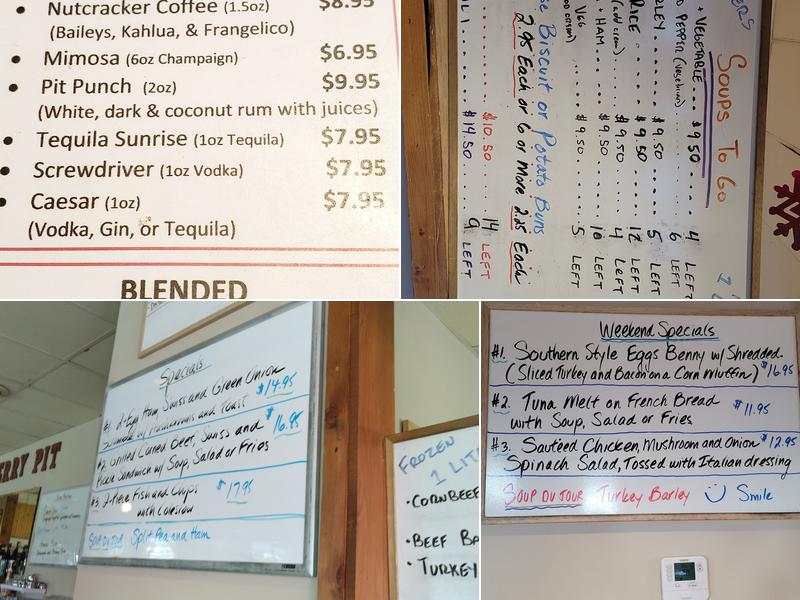 Nutcracker Coffee (1.5oz) $8.95
(Baileys, Kahlua, & Frangelico)
Mimosa (6oz Champaign) $6.95
Pit Punch (2oz) $9.95
(White, dark & coconut rum with juices)
Tequila Sunrise (1oz Tequila) $7.95
Screwdriver (1oz Vodka) $7.95
Caesar (1oz) $7.95
(Vodka, Gin, or Tequila)
BLENDED
Soups To Go
+ VEGETABLE $9.50 4 LEFT
PEPPER 6 LEFT
$9.50 5 LEFT
RICE $9.50 12 LEFT
$9.50 4 LEFT
HAM $9.50 10 LEFT
VEG $9.50 5 LEFT
Biscuit or Potato Buns
2.95 Each or 6 or More 2.25 Each
$10.50 14 LEFT
$14.50 9 LEFT
Specials
#1. 2-Egg Ham, Swiss and Green Onion
w/ Hashbrowns and Toast $14.95
#2. Grilled Corned Beef, Swiss and
Sandwich w/ Soup, Salad or Fries $16.95
#3. 2-Piece Fish and Chips $17.95
with Coleslaw
Soup Du Jour Split Pea and Ham
ERRY PIT
FROZEN
1 LIT
• CORN BEEF
• BEEF BA
• TURKEY
Weekend Specials
#1. Southern Style Eggs Benny w/ Shredded
(Sliced Turkey and Bacon on a Corn Muffin) $16.95
#2. Tuna Melt on French Bread
with Soup, Salad or Fries $11.95
#3. Sautéed Chicken, Mushroom and Onion $12.95
Spinach Salad, Tossed with Italian dressing
Soup Du Jour Turkey Barley Smile